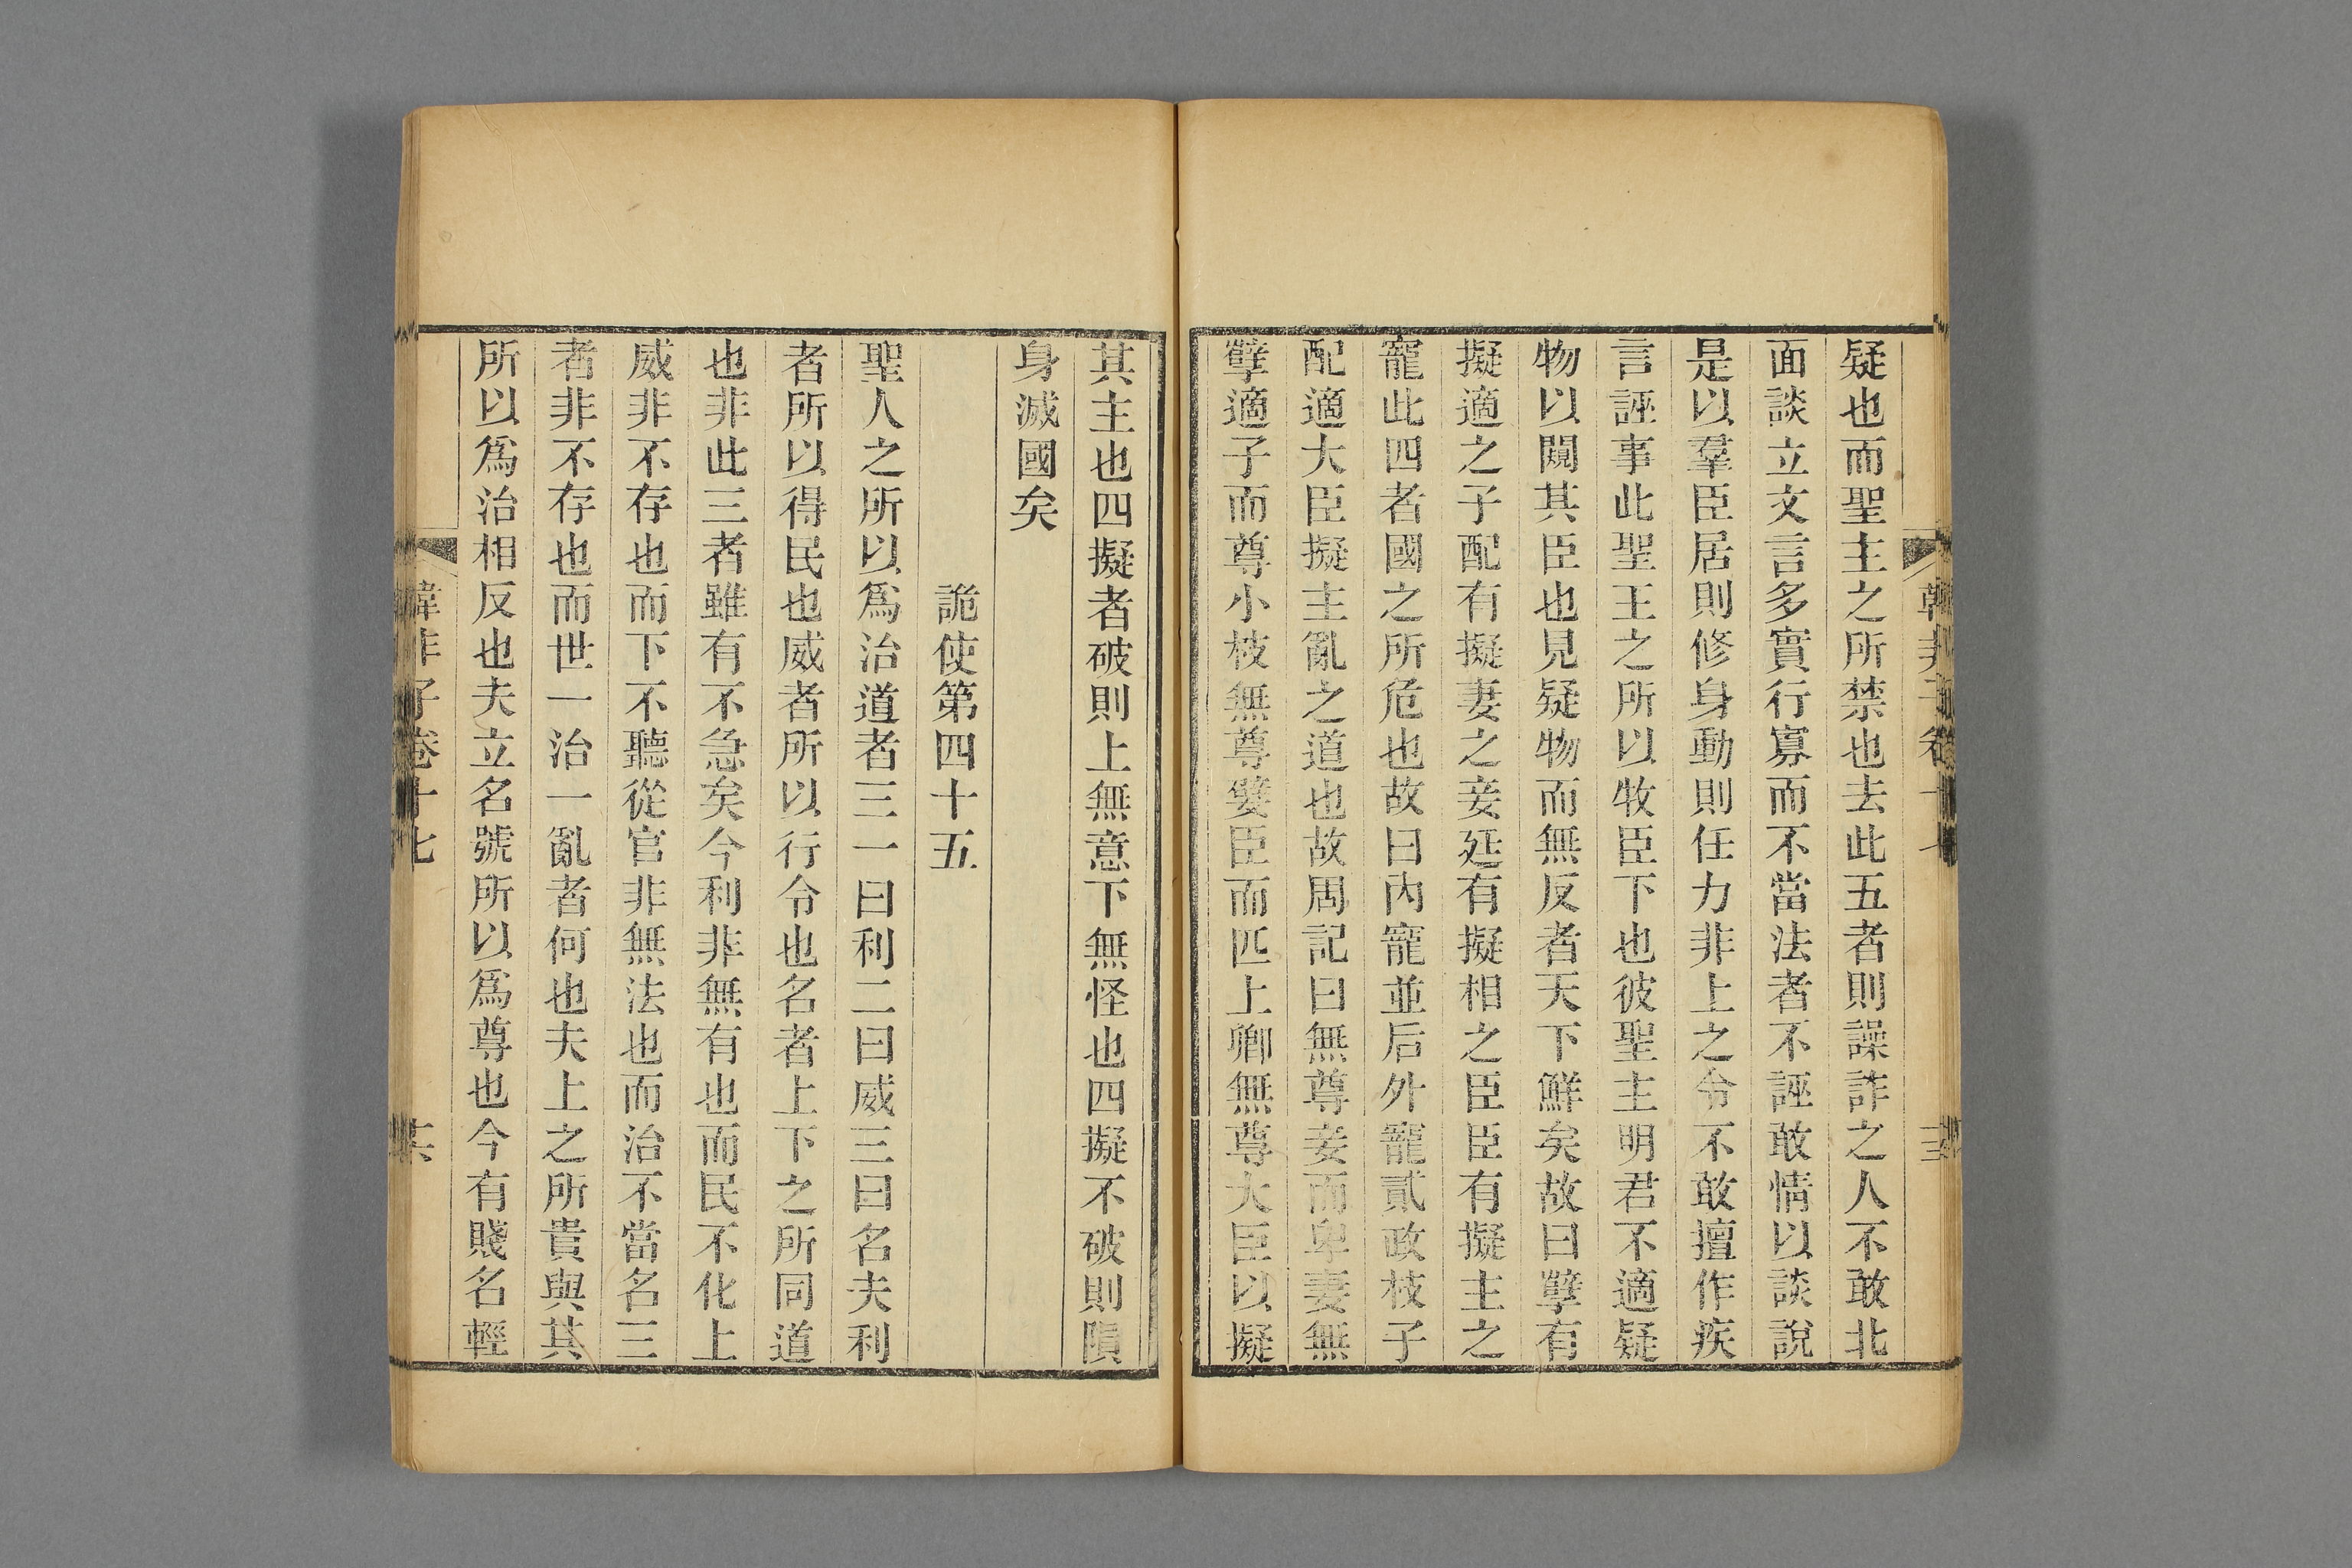 疑也而聖主之所禁也去此五者則譟詐之人不敢北
面談立文言多實行寡而不當法者不誣敢情以談說
是以羣臣居則修身動則任力非上之令不敢擅作疾
言誣事此聖王之所以牧臣下也彼聖主明君不適疑
物以闚其臣也見疑物而無反者天下鮮矣故曰孽有
擬適之子配有擬妻之妾廷有擬相之臣臣有擬主之
寵此四者國之所危也故曰內寵並后外寵貳政枝子
配適大臣擬主亂之道也故周記曰無尊妾而卑妻無
孽適子而尊小枝無尊嬖臣而匹上卿無尊大臣以擬
其主也四擬者破則上無意下無怪也四擬不破則隕
身滅國矣
詭使第四十五
聖人之所以爲治道者三一曰利二曰威三曰名夫利
者所以得民也威者所以行令也名者上下之所同道
也非此三者雖有不急矣今利非無有也而民不化上
威非不存也而下不聽從官非無法也而治不當名三
者非不存也而世一治一亂者何也夫上之所貴與其
所以爲治相反也夫立名號所以爲尊也今有賤名輕
韓非子卷十七